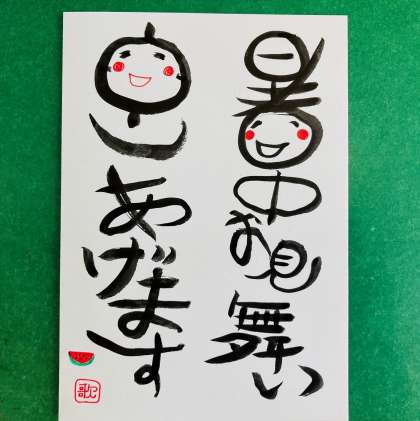 暑中お見舞い
申しあげます
歌